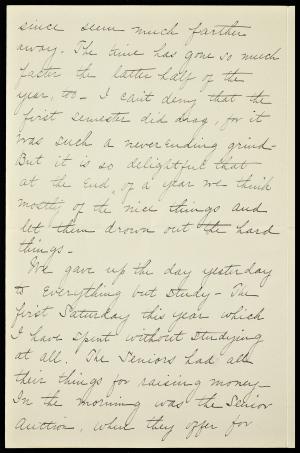 since seem much farther
away. The time has gone so much
faster the latter half of the
year, too - I can't deny that the
first semester did drag, for it
was such a neverending grind -
But it is so delightful that
at the end of a year we think
mostly of the nice things and
let them drown out the hard
things -
We gave up the day yesterday
to everything but study - The
first Saturday this year which
I have spent without studying
at all. The Seniors had all
their things for raising money -
In the morning was the Senior
Auction, when they offer for